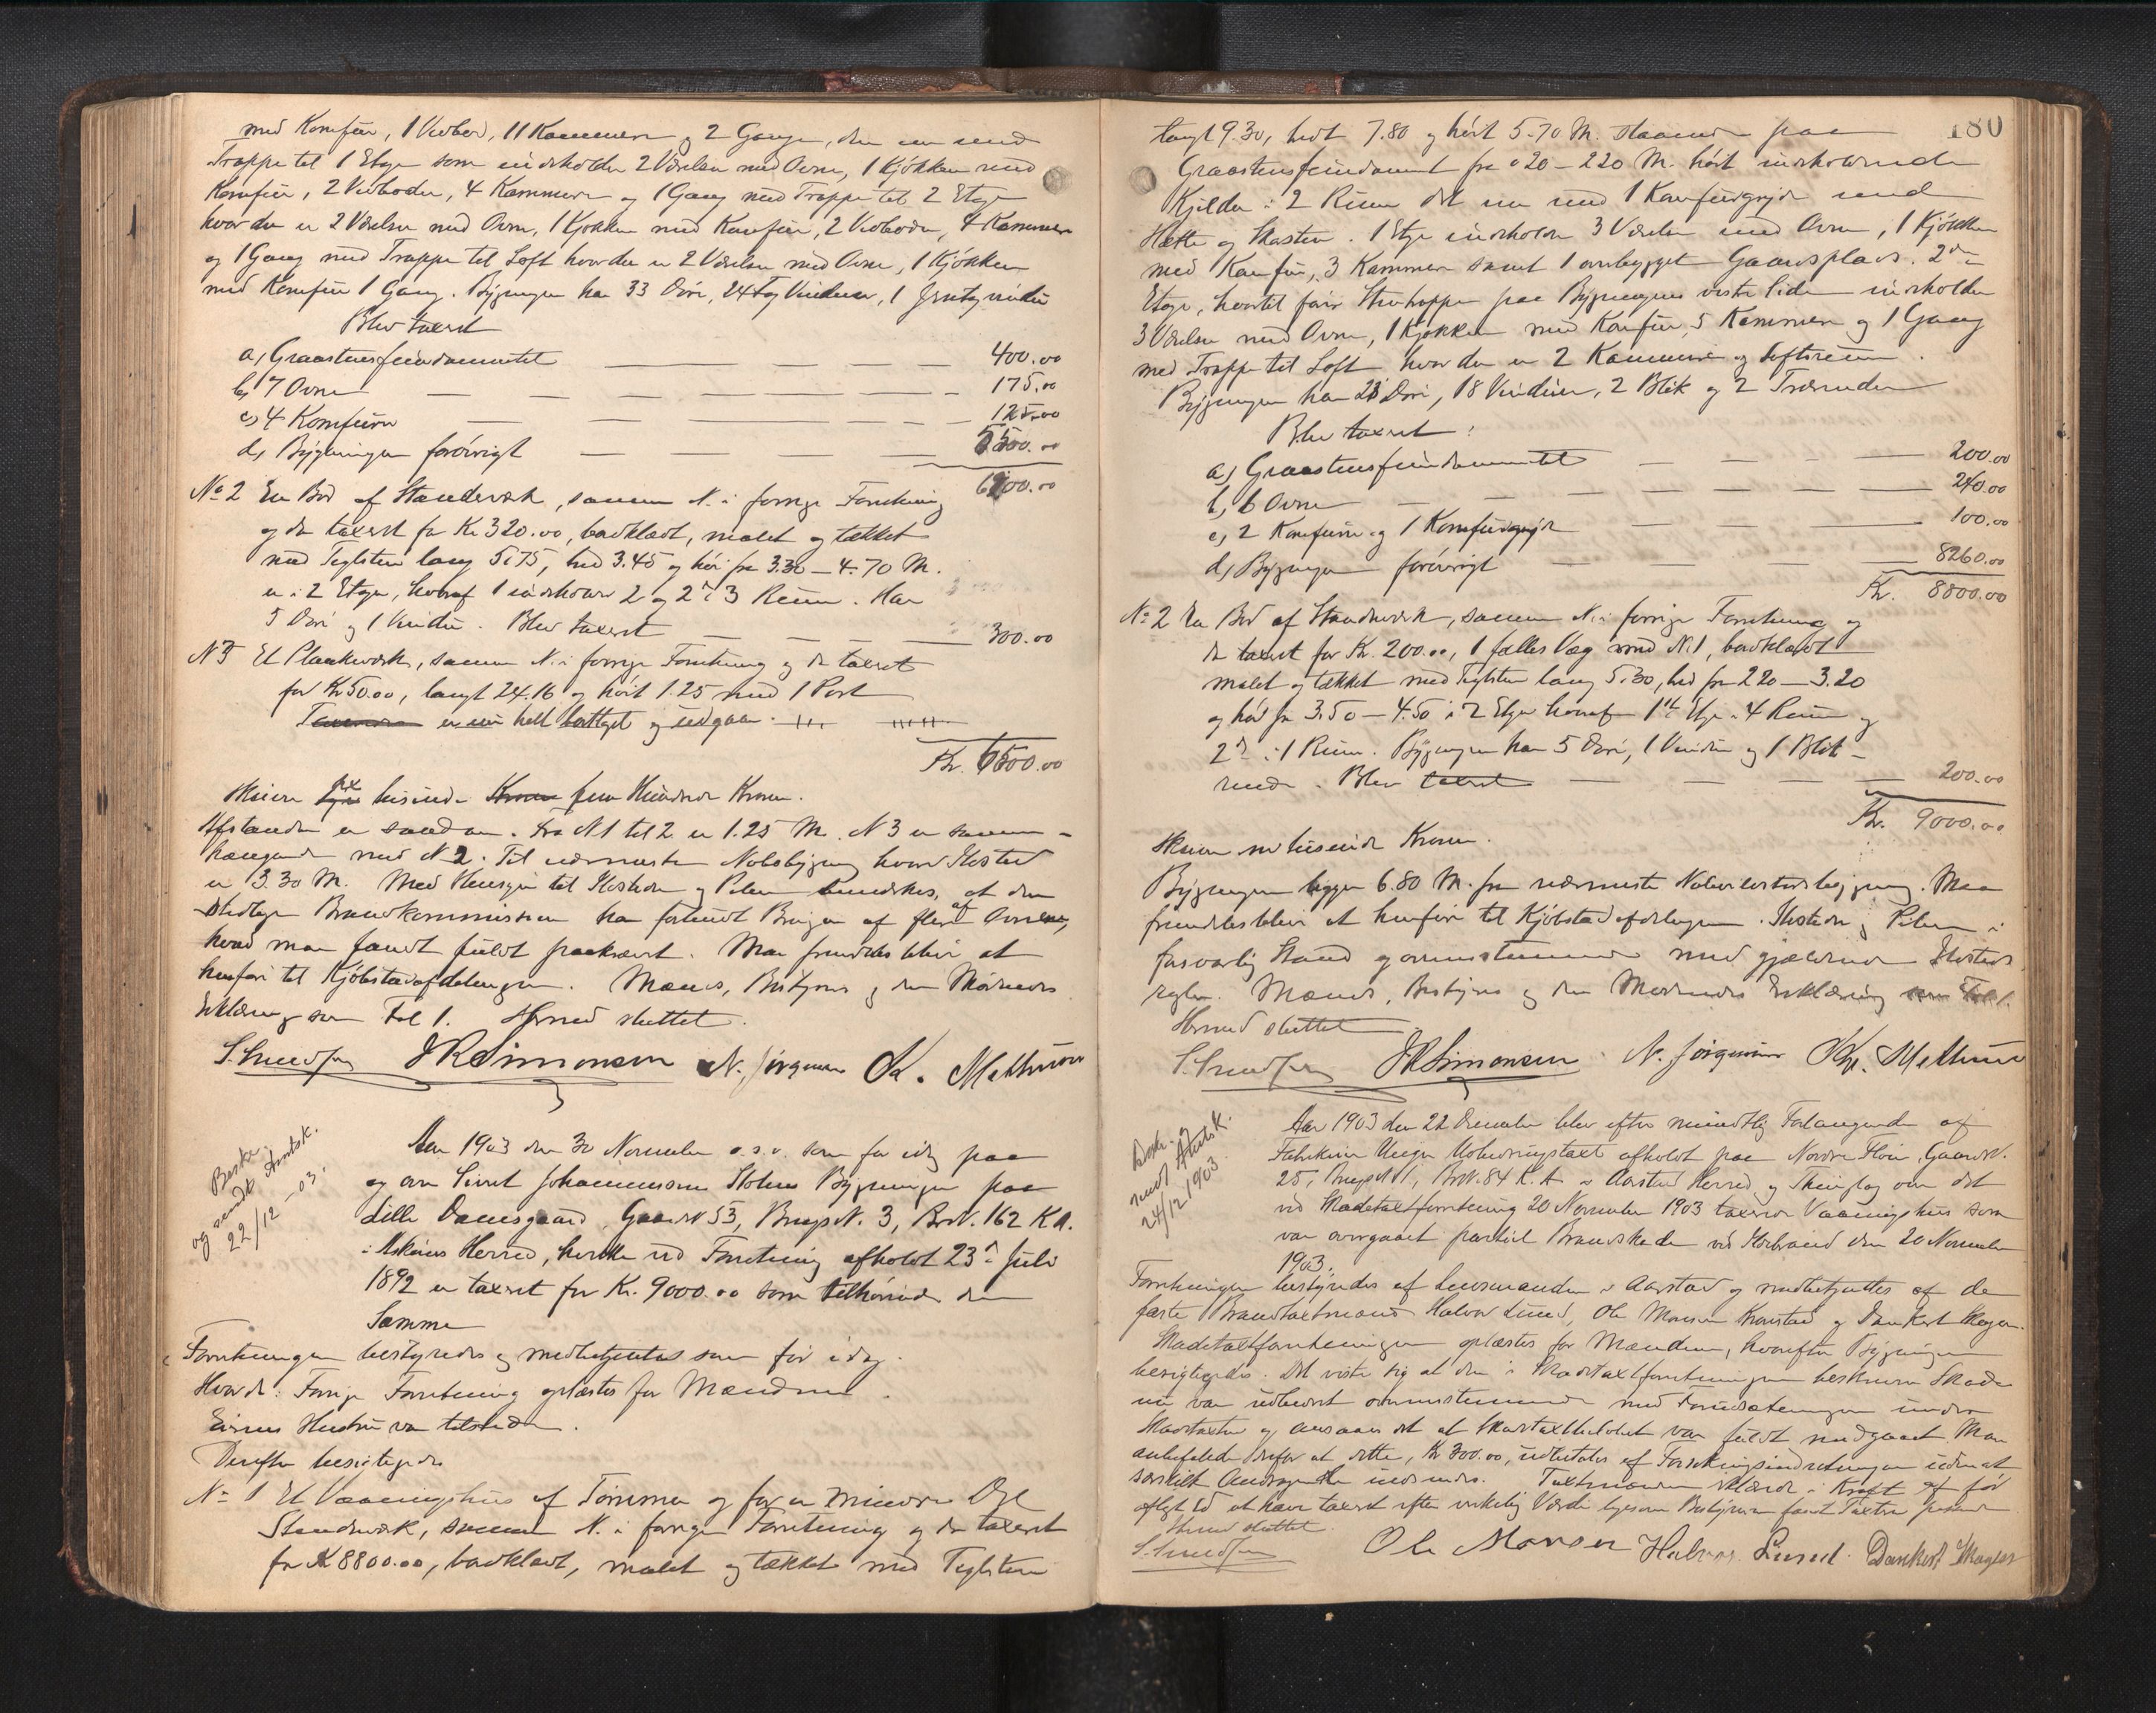 med Komfur, 1 Vedbod, 11 Kammere og 2 Gange, den ene med
Trappe til 1 Etage som indeholder 2 Værelser med Ovne, 1 Kjøkken med
Komfur, 2 Vedboder, 4 Kammere og 1 Gang med Trappe til 2 Etage
hvor der er 2 Værelser med Ovne, 1 Kjøkken med Komfur, 2 Vedboder, 4 Kammere
og 1 Gang med Trappe til Loft hvor der er 2 Værelser med Ovne, 1 Kjøkken
med Komfur 1 Gang. Bygningen har 33 Døre, 24 Fag Vinduer, 1
Blev taxeret
a, Graastensfundamentet 400.00
b, 7 Ovne 175.00
c, 4 Komfurer 125.00
d, Bygningen forøvrigt 5500.00
6200.00
No 2 En Bod af Stenderværk, samme N. i forrige Forretning
og da taxeret for Kr 320.00, bordklædt, malet og tækket
med Teglsten lang 5.75, bred 3.45 og høi fra 3.30 – 4.70 M.
er i 2 Etager, hvoraf 1 indeholder 2 og 2den 3 Rum. Har
5 Døre og 1 Vindu. Blev taxeret 300.00
N 3 Et Plankværk, samme N. i forrige Forretning og da taxeret
for Kr 50.00, langt 24.16 og høit 1.25 med 1 Port
er nu helt borttaget og udgaar.
Kr. 6500.00
Skriver sex tusinde fem Hundrede Kroner.
Afstanden er saadan. Fra N 1 til 2 er 1.25 M. N 3 er sammen-
hængende med N 2. Til nærmeste Nabobygning hvori Ildsted
er 3.30 M. Med Hensyn til Ildsteder og Piber bemærkes, at den
stedlige Brandkommission har forbudt Brugen af flere af Ovnene,
hvad man fandt fuldt paakrævet. Man fremdeles blive at
henføre til Kjøbstadafdelingen. Mænds, Bestyrers og den Mødendes
Erklæring som Fol 1. Hermed sluttet.
J R Simonsen N. Jørgensen K. Mathisen
Besk.
og sendt Amtsk.
22/12 – 03.
Aar 1903 den 30 November o.s.v. som før idag paa
og over Sivert Johannessens Holms Bygninger paa
Lille Damsgaard, Gaards N 53, Brugs N. 3, Br. N. 162 K.A.
i Askøens Herred, hvilke ved Forretning afholdt 23de Juli
1892 er taxeret for Kr. 9000.00 som tilhørende den
Samme
Forretningen bestyredes og medbetjentes som før idag.
Hvorda: Forrige Forretning oplæstes for Mændene.
Eierens Hustru var tilstede.
Derefter besigtigedes
No 1 Et Vaaningshus af Tømmer og for en mindre Del
Stenderværk, samme N. i forrige Forretning og da taxeret
for Kr 8800.00, bordklædt, malet og tækket med Teglsten
180
langt 9.30, bredt 7.80 og høit 5.70 M. staaende paa
Graastensfundament fra 0.20 – 2.20 M. høit indeholdende
Kjelder i 2 Rum det ene med 1 Komfurgryde med
Hætte og Skorsten. 1 Etage indeholder 3 Værelser med Ovne, 1 Kjøkken
med Komfur, 3 Kammere samt 1 overbygget Gaardsplads. 2den
Etage, hvortil fører Stentrappe paa Bygningens vestre Side indeholder
3 Værelser med Ovne, 1 Kjøkken med Komfur, 5 Kammere og 1 Gang
med Trappe til Loft hvor der er 2 Kammere og Loftsrum.
Bygningen har 23 Døre, 18 Vinduer, 2 Blik og 2 Trærender
Blev taxeret:
a, Graastensfundamentet 200.00
b, 6 Ovne 240.00
c, 2 Komfurer og 1 Komfurgryde 100.00
d, Bygningen forøvrigt 8260.00
Kr. 8800.00
No 2 En Bod af Stenderværk, samme N. i forrige Forretning og
da taxeret for Kr. 200.00, 1 fælles Væg med N. 1, bordklædt
malet og tækket med Teglsten lang 5.30, bred fra 2.20 – 3.20
og høi fra 3.50 – 4.50 i 2 Etager hvoraf 1ste Etage 4 Rum og
2den i 1 Rum. Bygningen har 5 Døre, 1 Vindu og 1 Blik-
rende. Blev taxeret 200.00
Kr. 9000.00
Skriver ni tusinde Kroner.
Bygningen ligger 6.80 M. fra nærmeste Naboildstedsbygning. Man
fremdeles blive at henføre til Kjøbstadafdelingen. Ildsteder og Piber i
forsvarlig Stand og overensstemmende med gjældende Ildsteds
regler. Mænds, Bestyrers og den Mødendes Erklæring som Fol 1.
Hermed sluttet
J R Simonsen N. Jørgensen K. Mathisen
Besk. og
sendt Amtsk.
24/12 1903
Aar 1903 den 22 December blev efter mundtlig Forlangende af
Fabrikeier Unger Udbedringstaxt afholdt paa Nordre Sloin, Gaards N.
25, Brugs N 1, Br. N. 84 K.A. i Aarstad Herred og Thinglag over det
ved Skadetaxtforretning 20 November 1903 taxerede Vaaningshus som
var overgaaet partiel Brandskade ved Ildebrand den 20 November
1903.
Forretningen bestyredes af Lensmanden i Aarstad og medbetjentes af de
faste Brandtaxtmænd Halvor Lund, Ole Monsen Kronstad og Dankert Skagen.
Skadetaxtforretningen oplæstes for Mændene, hvorefter Bygningen
besigtigedes. Det viste sig at den i Skadetaxtforretningen beskrevne Skade
nu var udbedret overensstemmende med Forudsætningen under
Skadetaxten og ansaaes det at Skadetaxtbeløbet var fuldt medgaaet. Man
anbefalede derfor at dette, Kr 300.00, udbetales af Forsikringsindretningen uden at
særskilt Andragende indsendes. Taxtmændene erklærede i Kraft af før
aflagt Ed at have taxeret efter virkelig Værdi ligesom Bestyreren fandt Taxten passende
Hermed sluttet
Ole Monsen Halvor Lund. Dankert Skagen